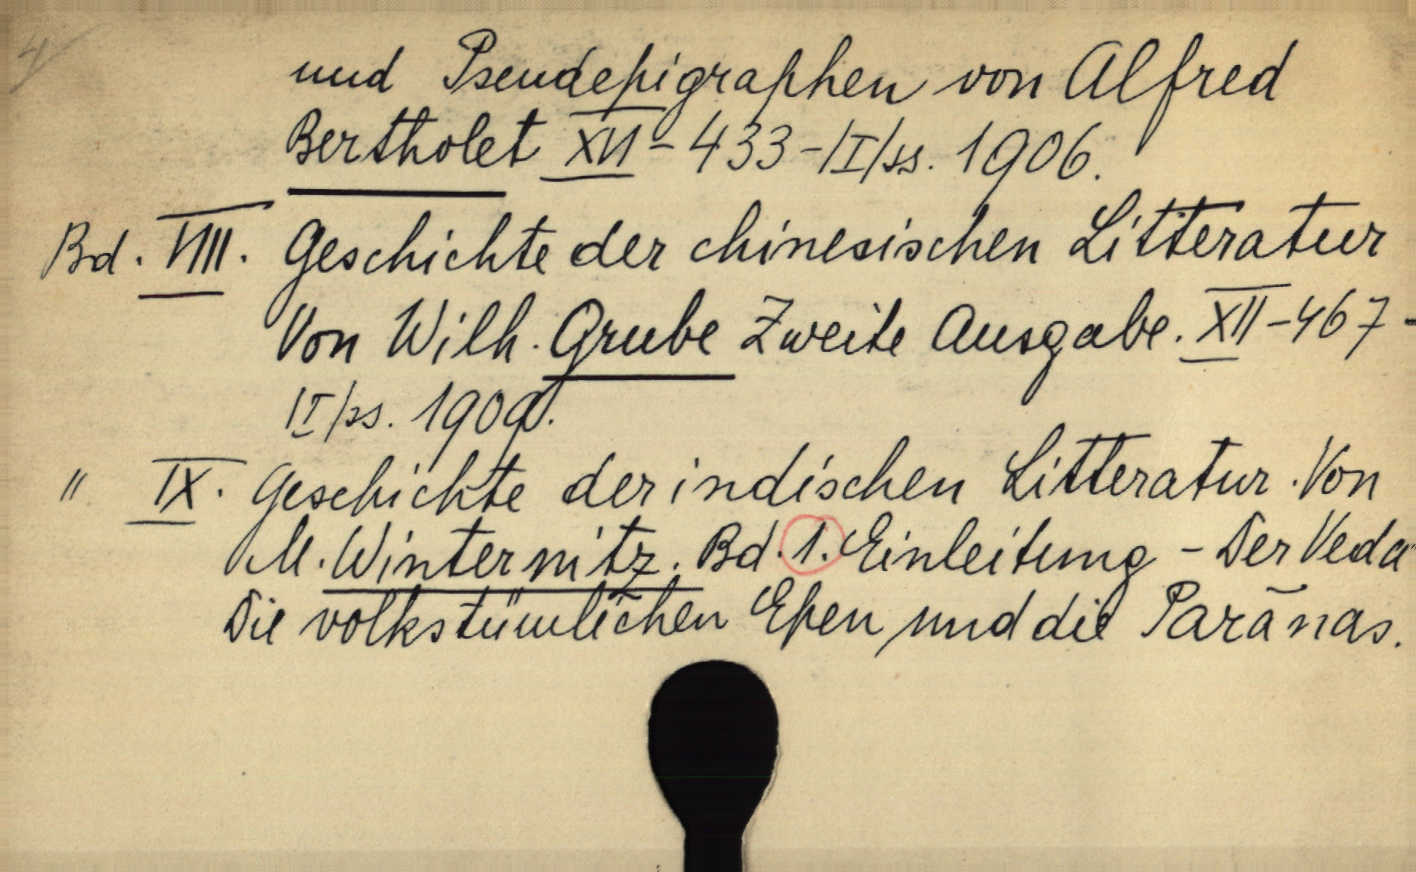 4
und Pseudepigraphen von Alfred
Bertholet XVI-433-/I/ss. 1906.
Bd. VIII. Geschichte der chinesischen Litteratur
Von Wilh. Grube Zweite Ausgabe. XII-467-
II/ss. 1909.
" IX. Geschichte der indischen Litteratur. Von
M. Winternitz. Bd. 1. Einleitung - Der Veda
Die volkstümlichen Epen und die Parānas.